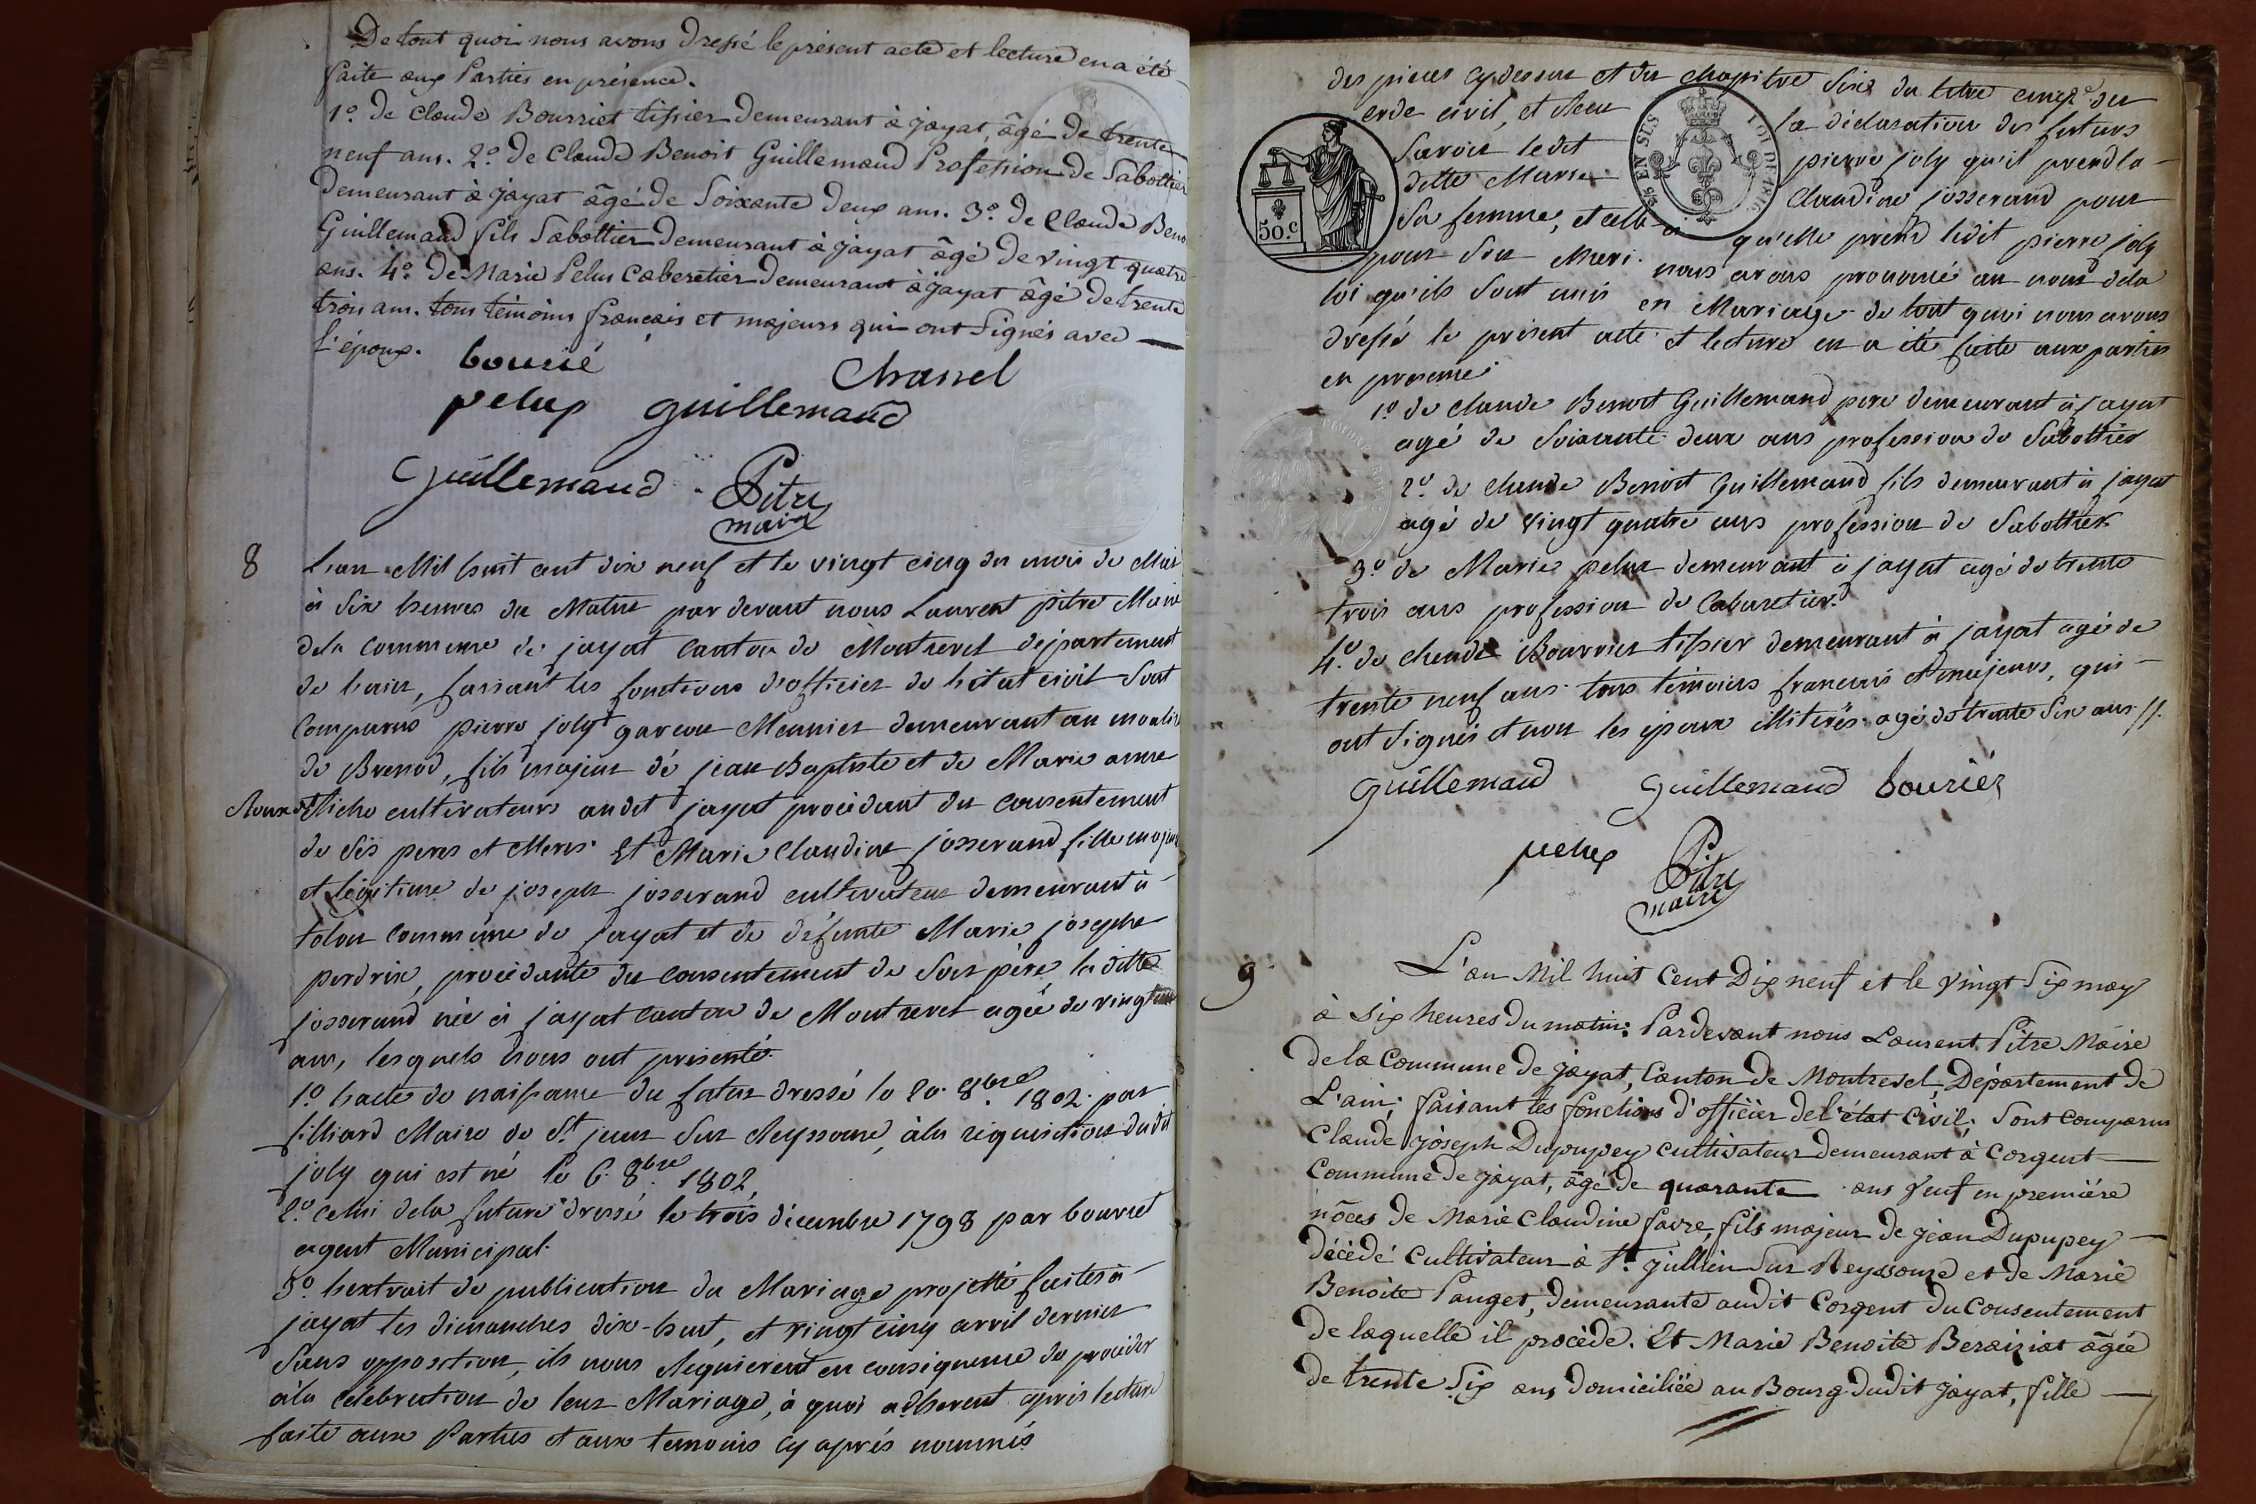 De tout quoi nous avons dressé le présent acte et lecture en a été
faite aux Parties en présence.
1º. de Claude Bourriet tissier demeurant à jayat, âgé de trente
neuf ans. 2º. de Claude Benoit Guillemaud Profession de Sabottier
demeurant à jayat âgé de Soixante deux ans. 3º. de Claude Beno
Guillemaud fils Sabottier demeurant à jayat âgé de vingt quatre
ans. 4º. de Marie Pelux Cabaretier demeurant à jayat âgé de trente
trois ans. tous témoins français et majeurs qui ont Signés avec
l'époux.
bourié
Chanel
pelux guillemaud
Guillemaud Pitre
maire
8
L'an Mil huit cent dix neuf et le vingt cinq du mois de Mai
à Six heures du Matin par devant nous Laurent pitre Maire
dela commune de jayat canton de Montrevel département
de l'ain, faisant les fonctions d'officier de l'état civil Sont
comparus pierre joly garcon Meunier demeurant au moulin
de Brenod, fils majeur de jean Baptiste et de Marie anne
Miche cultivateurs audit jayat procédant du consentement
de Ses peres et Meres. Et Marie Claudine josserand fille majeure
et légitime de joseph josserand cultivateur demeurant à
tolon commune de jayat et de défunte Marie josephe
perdrix, procédante du consentement de Son père, la ditte
josserand née à jayat canton de Montrevel agée de vingt
ans, lesquels nous ont présenté.
1º. l'acte de naissance du futur dressé le 20. 8bre 1802. par
filliard Maire de St. jean Sur Reyssouze, àla réquisition dudit
joly qui est né le 6. 8bre. 1802.
2º. Celui dela future dressé le trois décembre 1798 par bourret
agent Municipal.
3º. l'extrait de publication du Mariage projetté faites à
jayat les dimanches dix-huit, et vingt cinq avril dernier
Sans opposition, ils nous Requierent en conséquence de procéder
àla célébration de leur Mariage, à quoi adherent après lecture
faite aux Parties et aux temoins cy après nommés
des pieces cydessus et du chapitre Sixe du titre cinqe du
code civil, et Recu la déclaration des futurs
Savoir ledit pierre joly qu'il prend la
ditte Marie Claudine josserand pour
Sa femme, et celle ci qu'elle prend ledit pierre joly
pour Son Mari. nous avons prononcé au nom dela
loi qu'ils Sont unis en Mariage. de tout quoi nous avons
dressé le présent acte et lecture en a été faite aux parties
en presence
50.c
LOI DE 1816
1º. de Claude Benoit Guillemaud pere demeurant à jayat
agé de Soixante deux ans profession de Sabottier
2º. de Claude Benoit Guillemaud fils demeurant à jayat
agé de vingt quatre ans profession de Sabottier.
3º. de Marie pelux demeurant à jayat agé de trente
trois ans profession de Cabaretier.
4º. de Claude Bourrier tissier demeurant à jayat agé de
trente neuf ans. tous témoins francais et majeurs, qui
ont Signés et non les époux illiterés. agé de trente Six ans //.
Guillemaud Guillemaud bouriér
pelux Pitre
maire
9.
L'an Mil huit Cent Dix neuf et le vingt Six may
à Six heures du matin; Pardevant nous Laurent Pitre Maire
de la Commune de jayat, Canton de Montrevel, Département de
L'ain; faisant les fonctions d'officier de l'état Civil; Sont comparus
Claude joseph Dupupey cultivateur demeurant à Corgent
Commune de jayat, âgé de quarante ans Veuf en première
nôces de Marie Claudine favre, fils majeur de jean Dupupey
décédé cultivateur à St. jullien Sur Reyssouze et de Marie
Benoite Pauget, demeurante audit Corgent du Consentement
de laquelle il procède. Et Marie Benoite Beraiziat âgée
de trente Six ans domiciliée au Bourg dudit jayat, fille